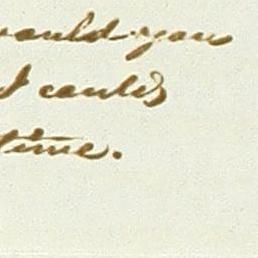 would you
I could
time.